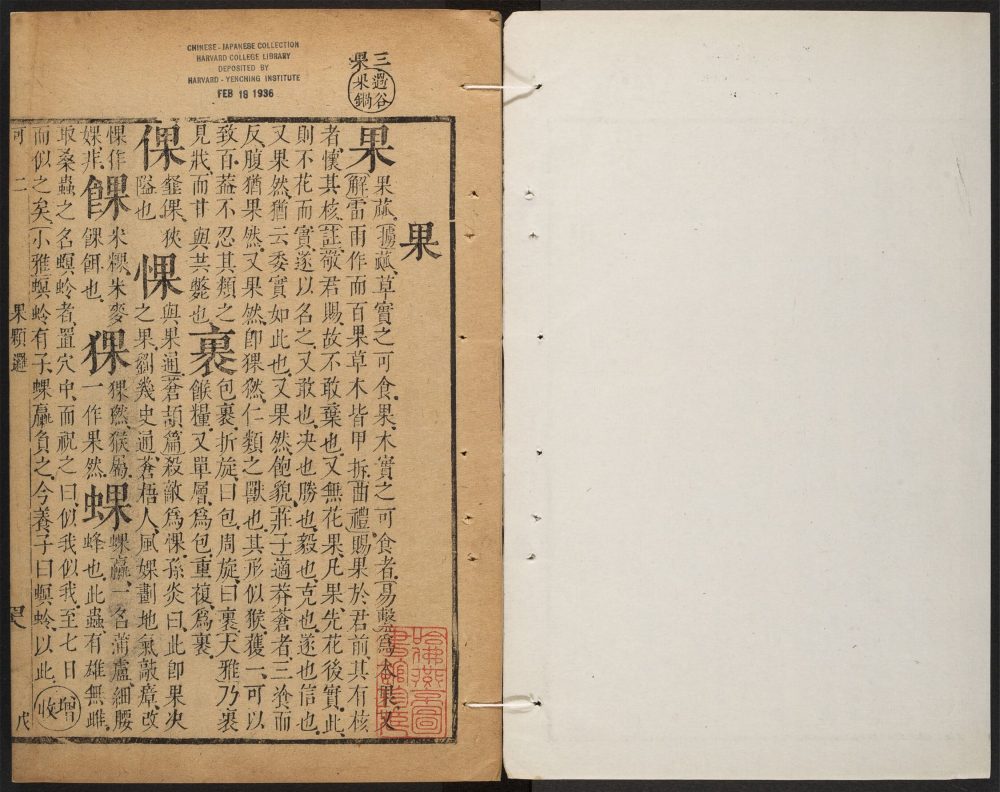 CHINESE - JAPANESE COLLECTION
HARVARD COLLEGE LIBRARY
DEPOSITED BY
HARVARD - YENCHING INSTITUTE
FEB 18 1936
三
果
果
果蓏草實之可食果木實之可食者易繫爲木果又
解雷雨作而百果草木皆甲拆曲禮賜果於君前其有核
者懷其核註敬君賜故不敢棄也又無花果凡果先花後實此
則不花而實遂以名之又敢也決也勝也毅也克也遂也信也
又果然猶云委實如此也又果然飽貌莊子適莽蒼者三飡而
反腹猶果然又果然即猓㸐仁類之獸也其形似猴獲一可以
致百蓋不忍其類之
見戕而甘與共斃也
裹
包裹折旋曰包周旋曰裹大雅乃裹
餱糧又單層爲包重複爲裹
倮
狹
隘也
惈
與果通蒼頡篇殺敵爲惈孫炎曰此即果決
之果劉幾史通蒼梧人風婐劃地氣敲瘴改
惈作
婐非
餜
米粿米麥
餜餌也
猓
猓㸐猴屬
一作果然
蜾
蜾蠃一名蒲盧細腰
蜂也此蟲有雄無雌
取桑蟲之名螟蛉者置穴中而祝之曰似我似我至七日
而似之矣小雅螟蛉有子蜾蠃負之今養子曰螟蛉以此
增收
可
二
果顆邏